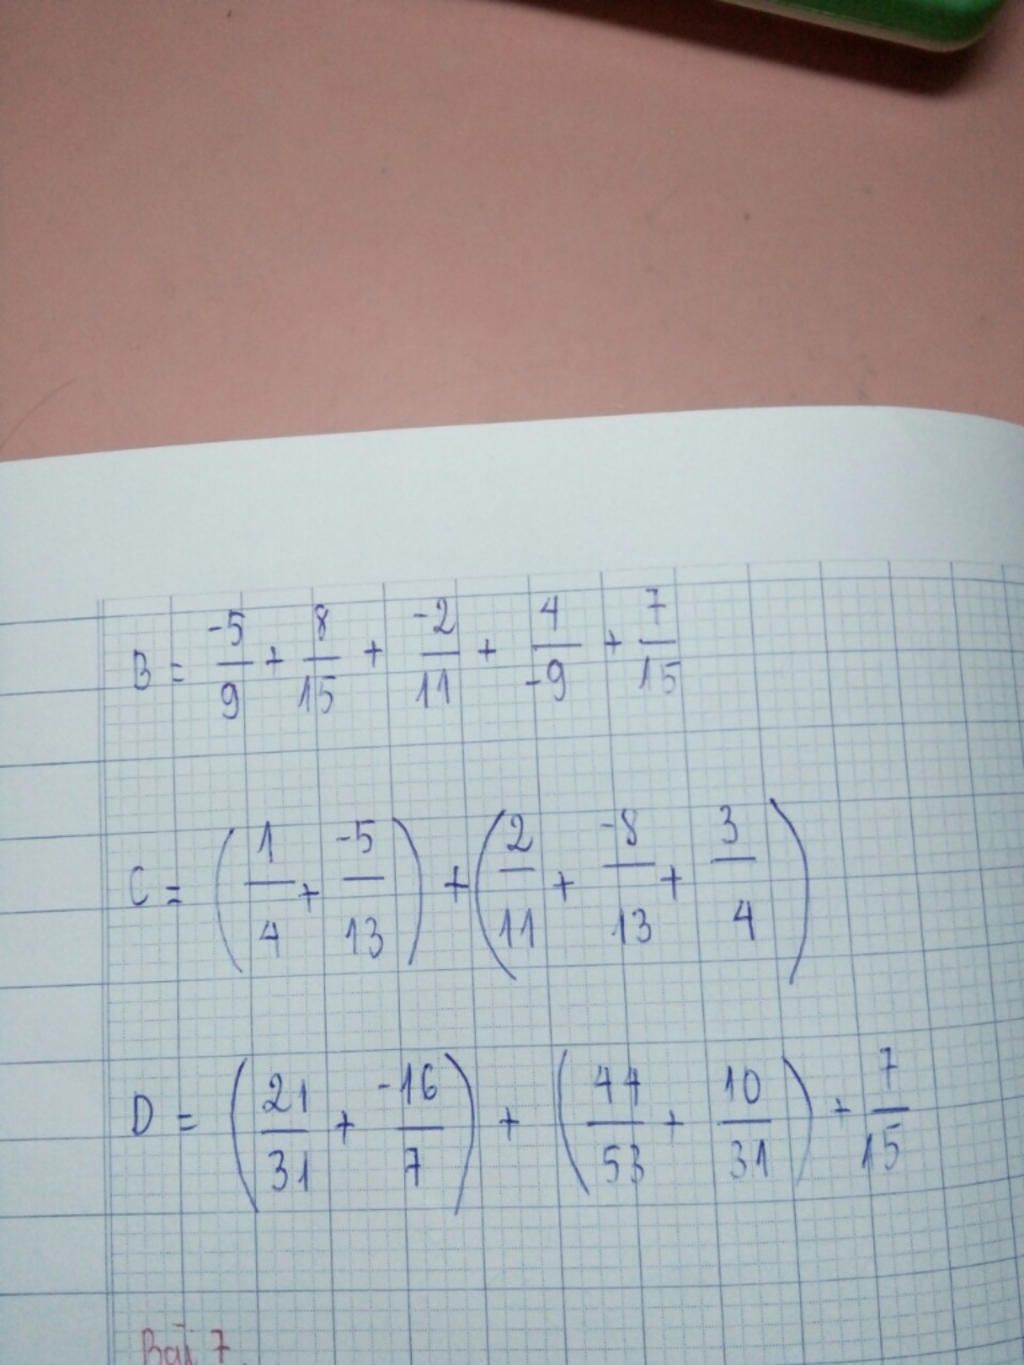 B = -5/9 + 8/15 + -2/11 + 4/-9 + 7/15
C = (1/4 + -5/13) + (2/11 + -8/13 + 3/4)
D = (21/31 + -16/7) + (44/53 + 10/31) + 7/15
Bài 7.